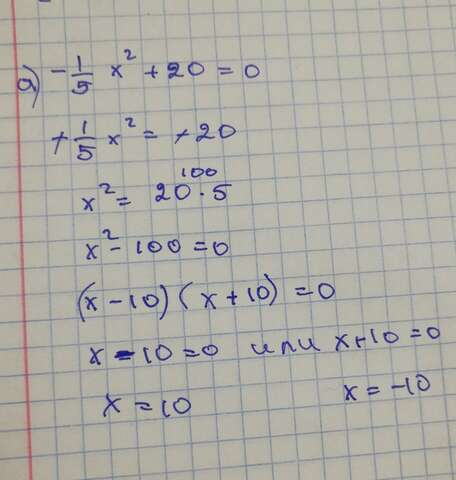 а) -1/5 x² + 20 = 0
+1/5 x² = +20
100
x² = 20 · 5
x² - 100 = 0
(x - 10) (x + 10) = 0
x - 10 = 0 или x + 10 = 0
x = 10 x = -10